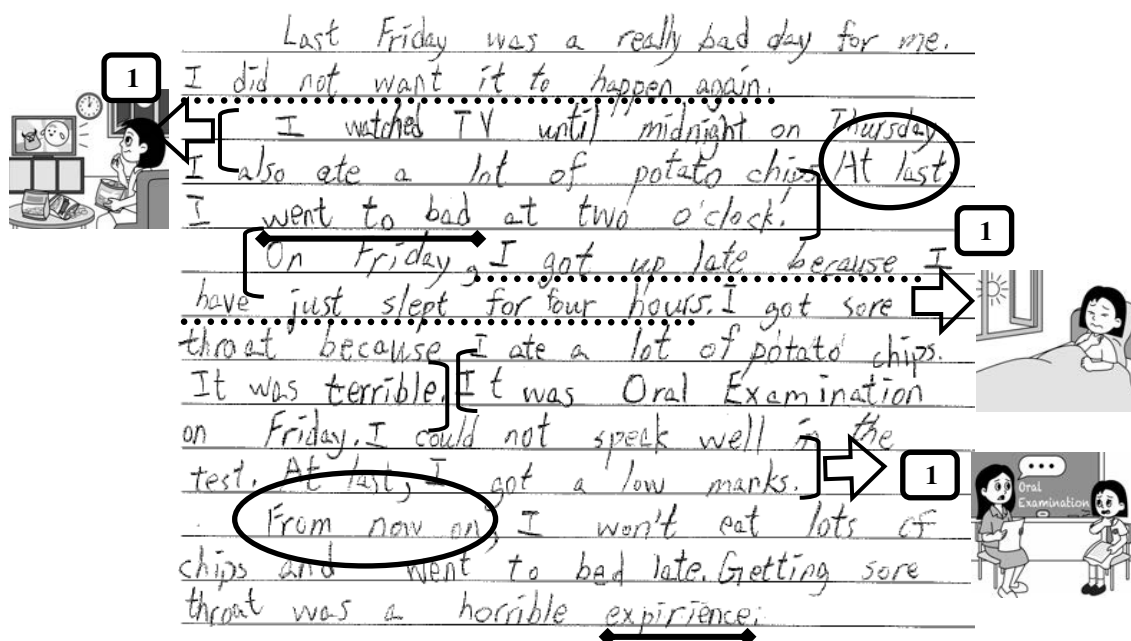 Last Friday was a really bad day for me.
I did not want it to happen again.
1
I watched TV until midnight on Thursday.
I also ate a lot of potato chips. At last,
I went to bad at two o'clock.
1
On Friday, I got up late because I
have just slept for four hours. I got sore
throat because I ate a lot of potato chips.
It was terrible. It was Oral Examination
on Friday. I could not speak well in the
test. At last, I got a low marks.
1
Oral
Examination
From now on, I won't eat lots of
chips and went to bed late. Getting sore
throat was a horrible expirience.